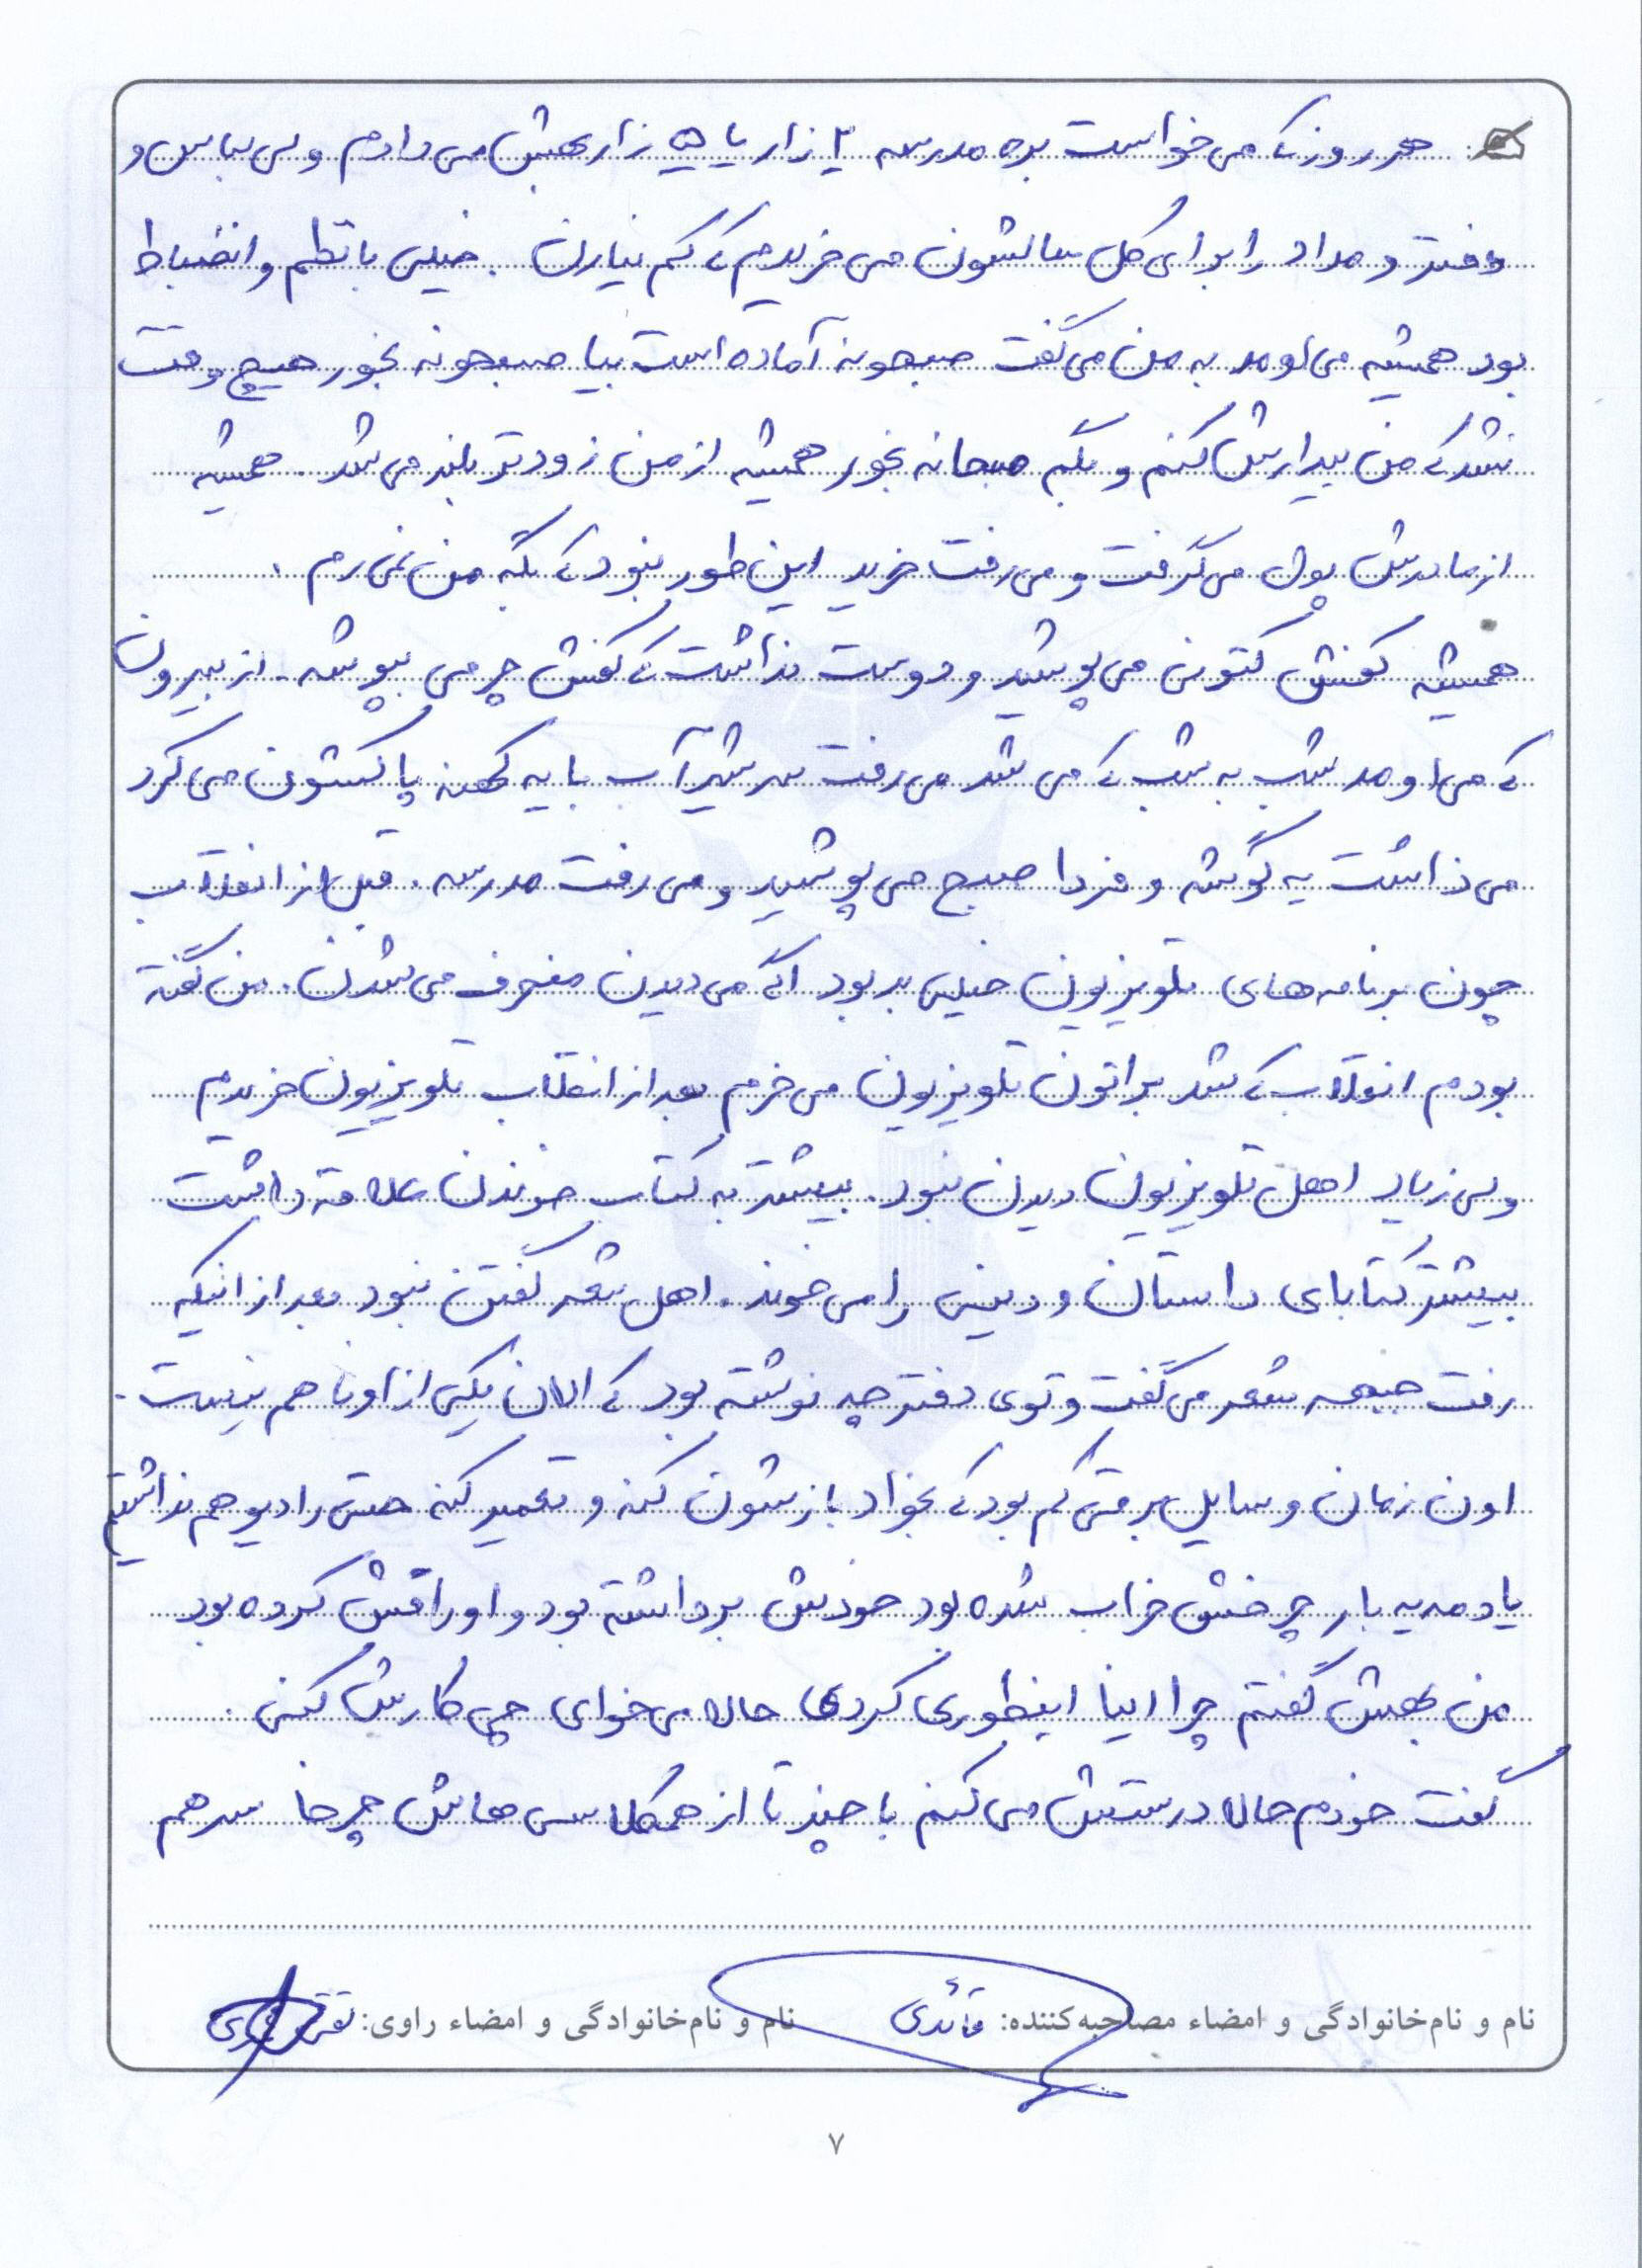 هر روز که می خواست بره مدرسه ۲ زار یا ۵ زار بهش می دادم ولی لباس و
دفتر و مداد را برای کل سالشون می خریدم که کم نیارن . خیلی با نظم و انضباط
بود همیشه می اومد به من می گفت صبحونه آماده است بیا صبحونه بخور هیچ وقت
نشد که من بیدارش کنم و بگم صبحانه بخور همیشه از من زودتر بلند می شد . همیشه
از مادرش پول می گرفت و می رفت خرید این طور نبود که بگه من نمی رم .
همیشه کفش کتونی می پوشید و دوست نداشت که کفش چرمی بپوشه . از بیرون
که می اومد شب به شب که می شد می رفت سر شیر آب با یه کهنه پاکشون می کرد
می ذاشت یه گوشه و فردا صبح می پوشید و می رفت مدرسه . قبل از انقلاب
چون برنامه های تلویزیون خیلی بد بود اگه می دیدن منحرف می شدن . من گفته
بودم انقلاب که شد براتون تلویزیون می خرم بعد از انقلاب تلویزیون خریدم
ولی زیاد اهل تلویزیون دیدن نبود . بیشتر به کتاب خوندن علاقه داشت
بیشتر کتابای داستان و دینی را می خوند . اهل شعر گفتن نبود بعد از اینکه
رفت جبهه شعر می گفت و توی دفترچه نوشته بود که الان یکی از اونا هم نیست .
اون زمان وسایل برقی کم بود که بخواد بازشون کنه و تعمیر کنه حتی رادیو هم نداشتیم
یادمه یه بار چرخش خراب شده بود خودش برداشته بود و اوراقش کرده بود
من بهش گفتم چرا اینا اینطوری کردی حالا می خوای چی کارش کنی .
گفت خودم حالا درستش می کنم با چند تا از همکلاسی هاش چرخا سرهم
نام و نام‌خانوادگی و امضاء مصاحبه‌کننده: قائدی
نام و نام‌خانوادگی و امضاء راوی: تقی
۷